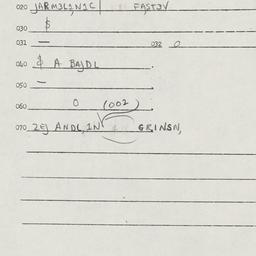 020 JARM3L1N1C FAST3V
030 $
031 — 032 0
040 $ A BAJDL
050 —
060 0 (002)
070 2EJ ANDL,1N GRINSN,